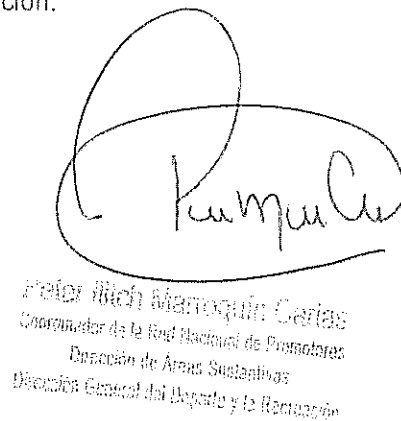 ción.
Peter Marroquín Carías
Coordinador de la Red Nacional de Promotores
Dirección de Áreas Sustantivas
Dirección General del Deporte y la Recreación